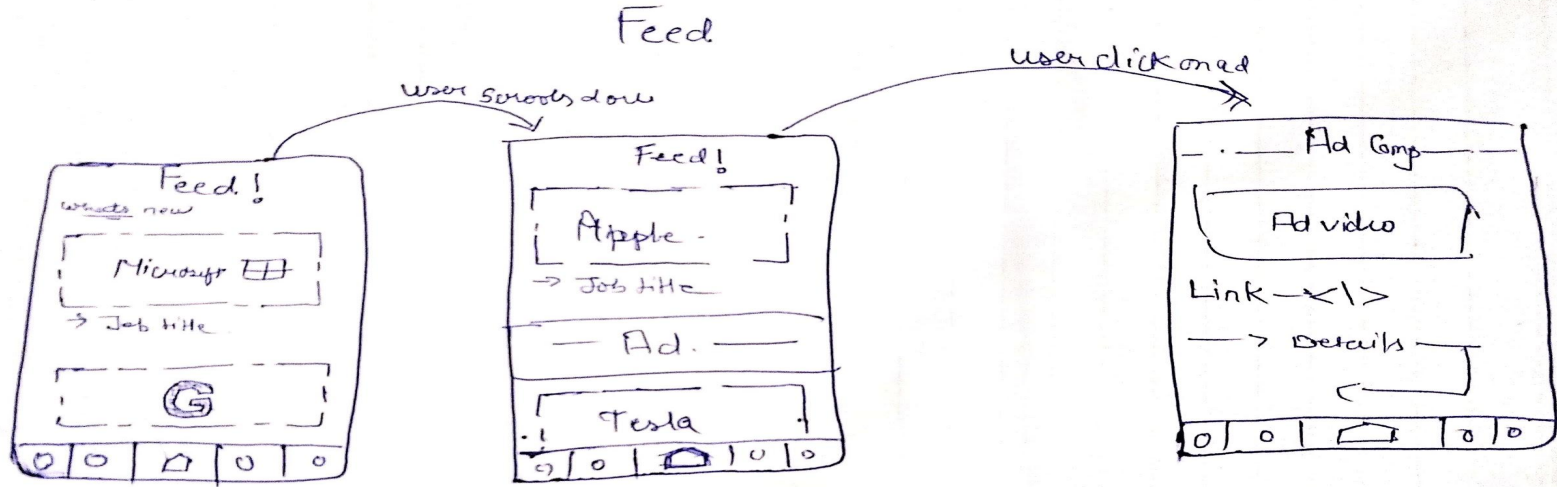 Feed
user scrools down
user click on ad
Feed!
whats new
Microsoft
→ Job title
G
Feed!
Apple.
→ Job title
— Ad. —
Tesla
— Ad Comp —
Ad video
Link —<\>
—> Details —